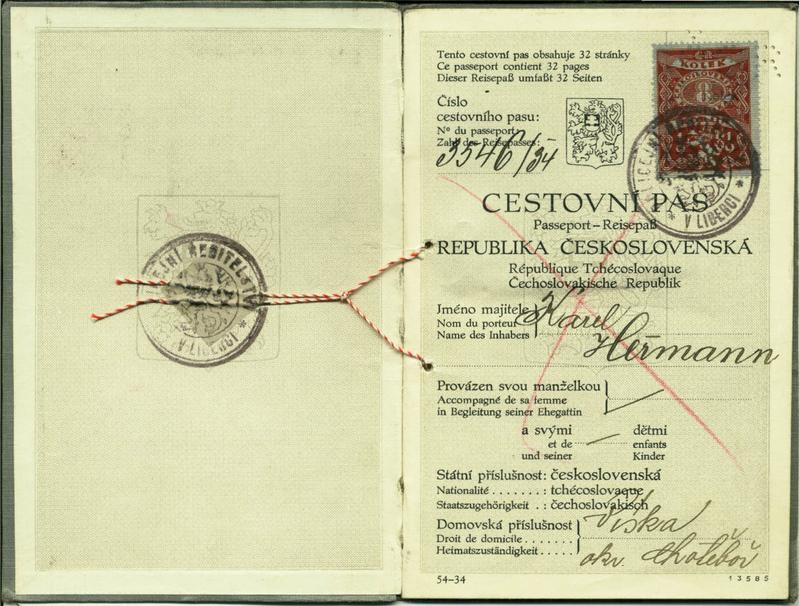 ŘEDITELSTV
V LIBERCI
Tento cestovní pas obsahuje 32 stránky
Ce passeport contient 32 pages
Dieser Reisepaß umfaßt 32 Seiten
KOLEK
8
Číslo
cestovního pasu:
No du passeport
Zahl des Reisepasses:
3546/34
V LIBERCI
CESTOVNÍ PAS
Passeport – Reisepaß
REPUBLIKA ČESKOSLOVENSKÁ
République Tchécoslovaque
Čechoslovakische Republik
Jméno majitele
Nom du porteur
Name des Inhabers
Karel
Heřmann
Provázen svou manželkou
Accompagné de sa femme
in Begleitung seiner Ehegattin
a svými dětmi
et de enfants
und seiner Kinder
Státní příslušnost: československá
Nationalité . . . . . . : tchécoslovaque
Staatszugehörigkeit . . : čechoslovakisch
Domovská příslušnost
Droit de domicile . . . . .
Heimatszuständigkeit . . . . .
Víska
okr. Chotěboř
54–34
13585